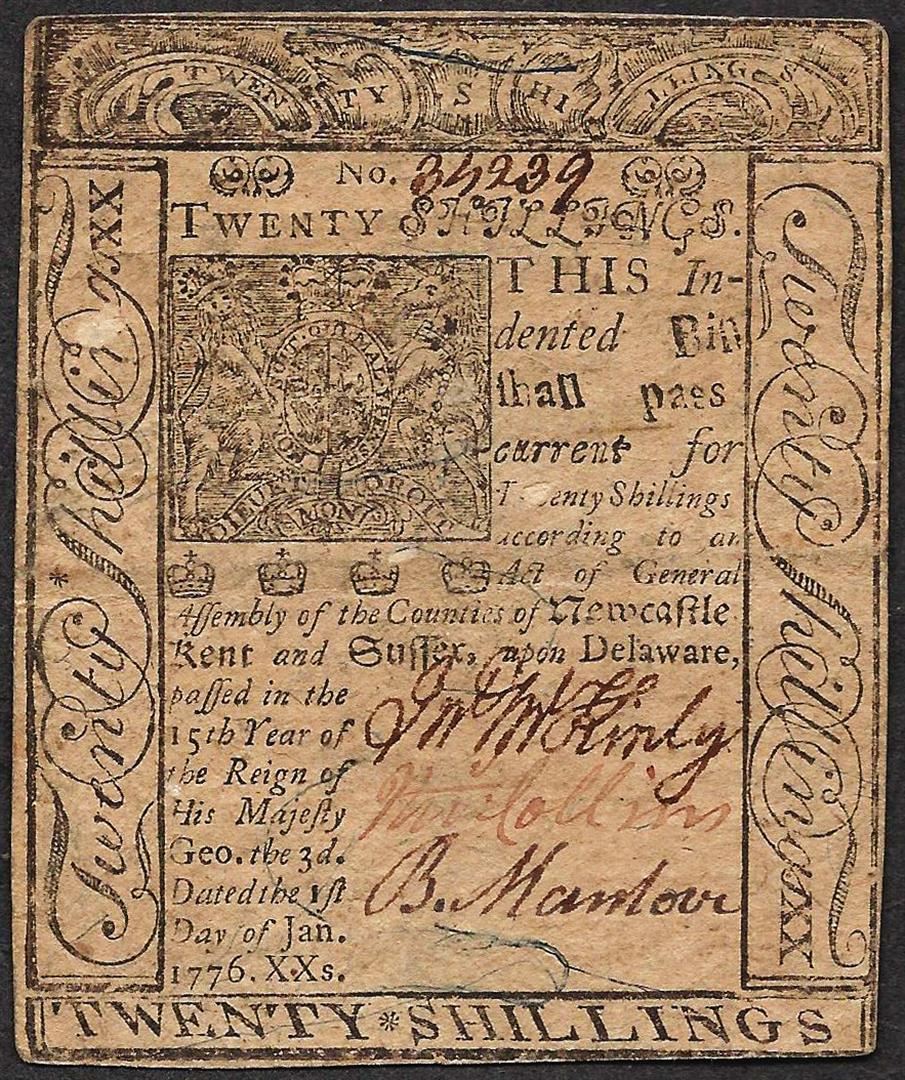 TWENTY SHILLINGS
No. 34239
TWENTY SHILLINGS.
THIS In-
dented Bill
ſhall paſs
current for
Twenty Shillings
according to an
Act of General
Aſſembly of the Counties of Newcaſtle
Kent and Suſſex, upon Delaware,
paſſed in the
15th Year of
the Reign of
His Majeſty
Geo. the 3d.
Dated the 1ſt
Day of Jan.
1776. XXs.
Jno McKinly
Collins
B. Manlove
HONI SOIT QUI MAL Y PENSE
DIEU ET MON DROIT
Twenty ſhillings XX
Twenty ſhillings XX
TWENTY * SHILLINGS